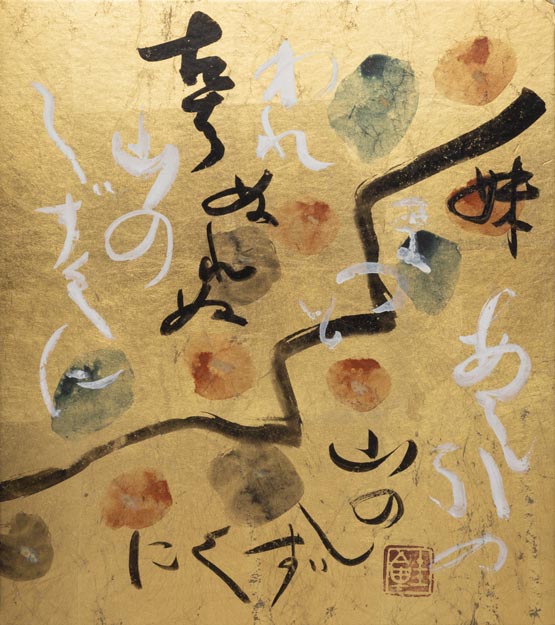 あし引の
山の
しずくに
妹
まつと
われ
立ち
ぬれぬ
山の
しずくに